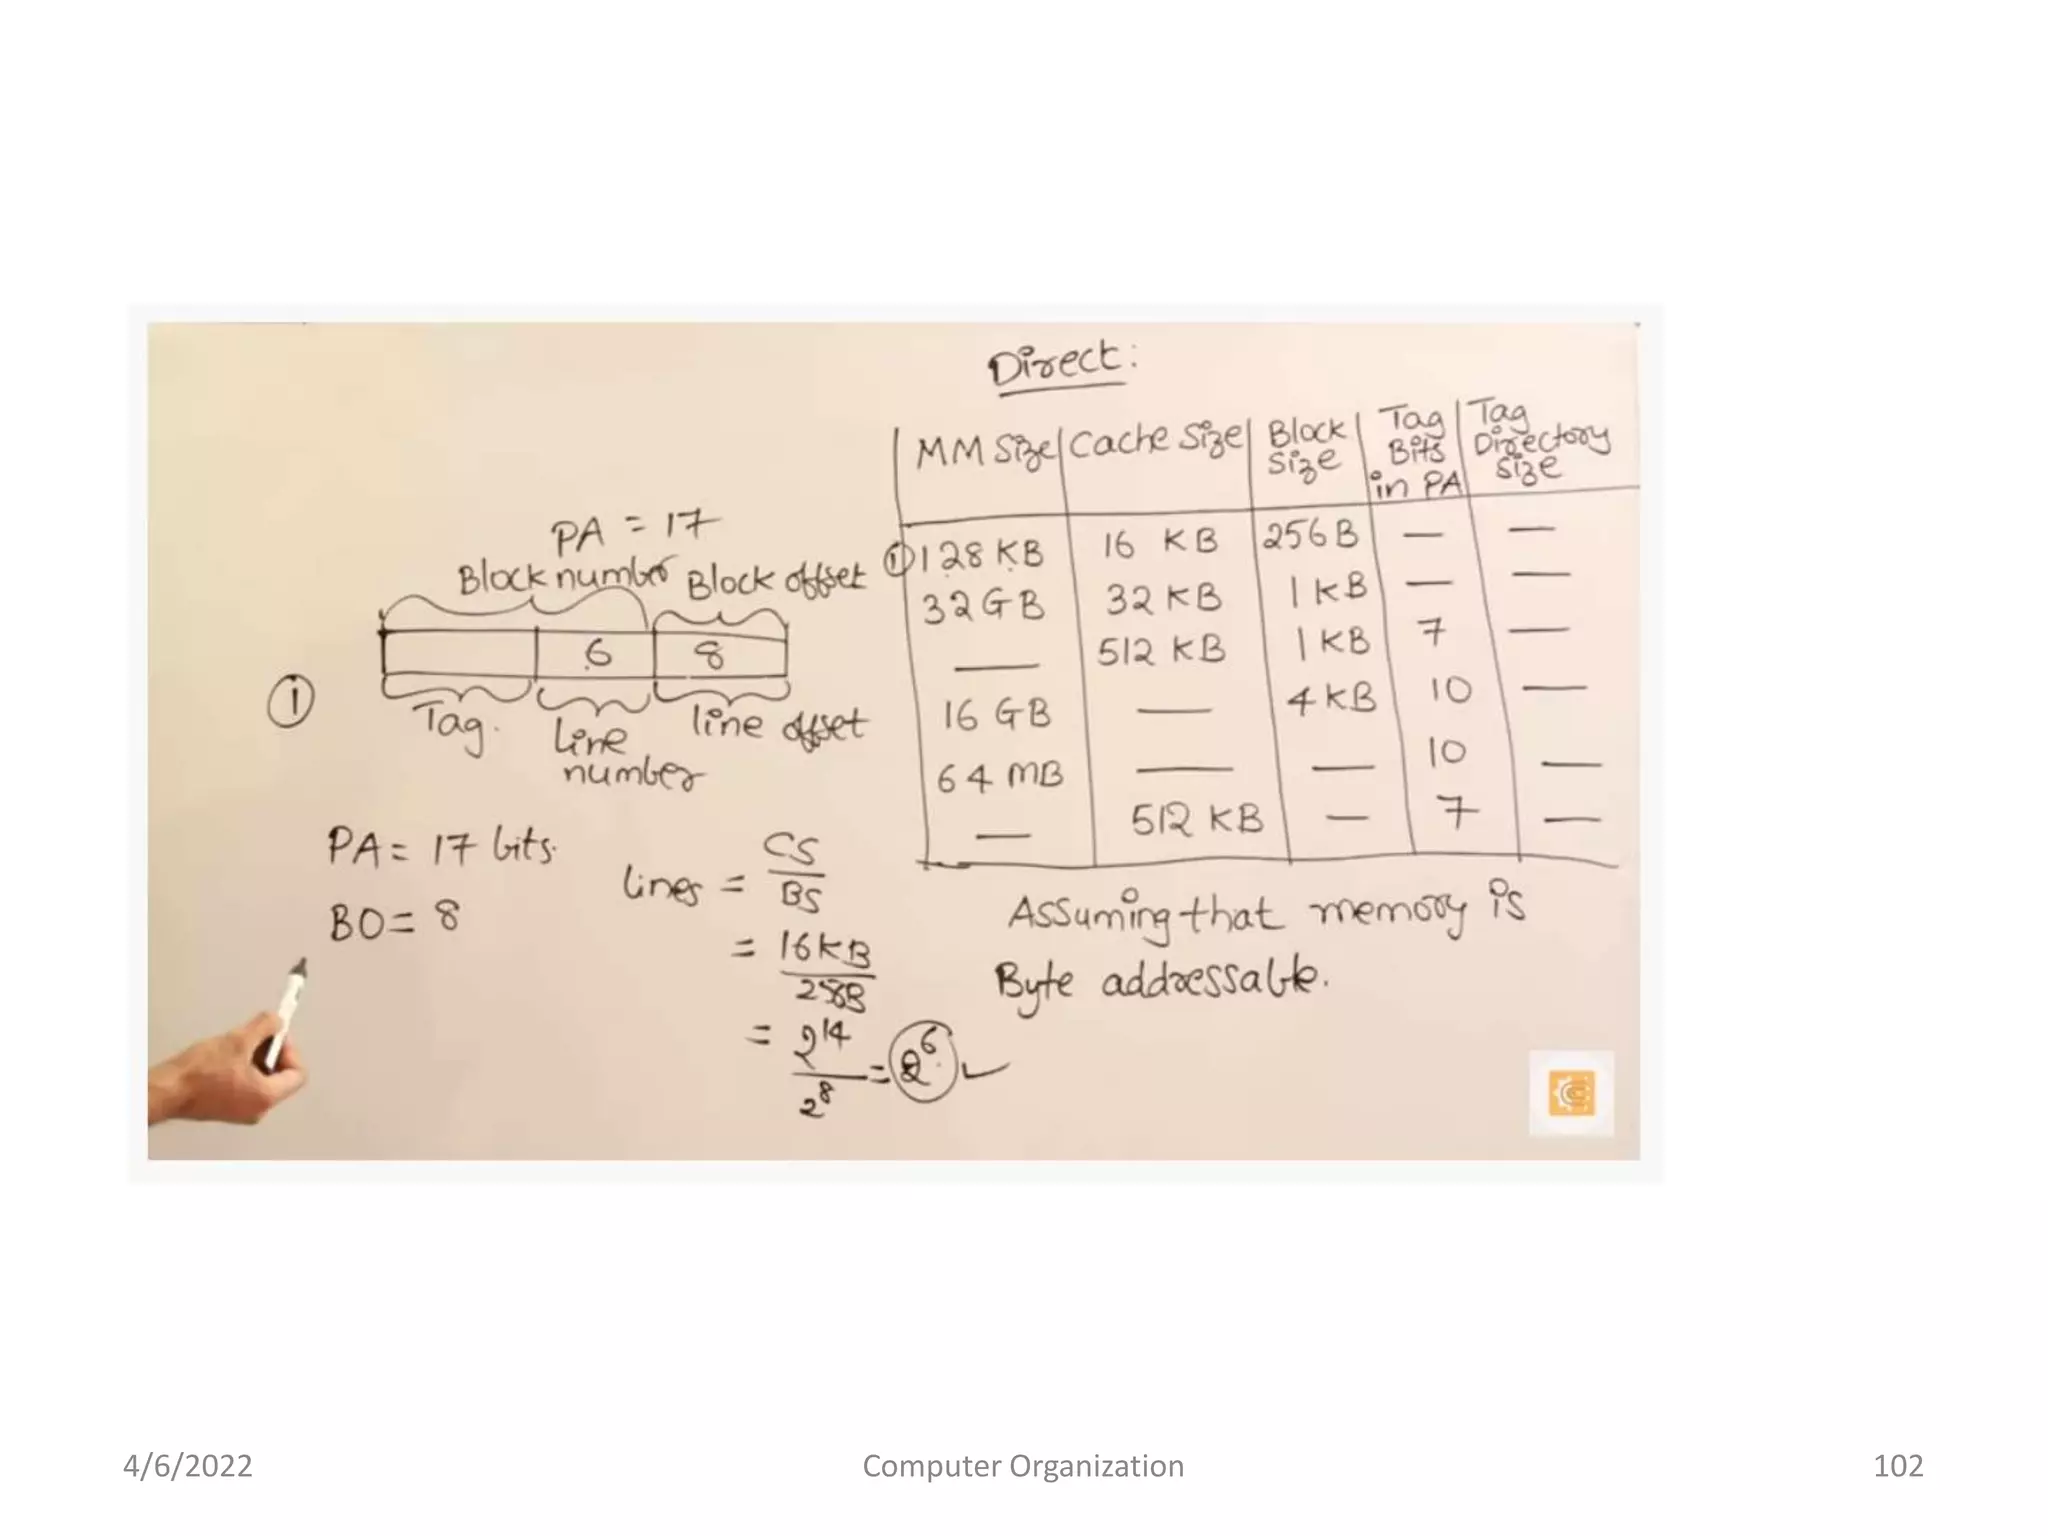 Direct:
MM Size Cache Size Block Size Tag Bits in PA Tag Directory Size
① 128 KB 16 KB 256 B — —
32 GB 32 KB 1 KB — —
— 512 KB 1 KB 7 —
16 GB — 4 KB 10 —
64 MB — — 10 —
— 512 KB — 7 —
Assuming that memory is
Byte addressable.
PA = 17
Block number Block offset
6 8
①
Tag. Line number line offset
PA = 17 bits.
BO = 8
lines = CS / BS
= 16KB / 256B
= 2^14 / 2^8 = 2^6 ✓
4/6/2022 Computer Organization 102